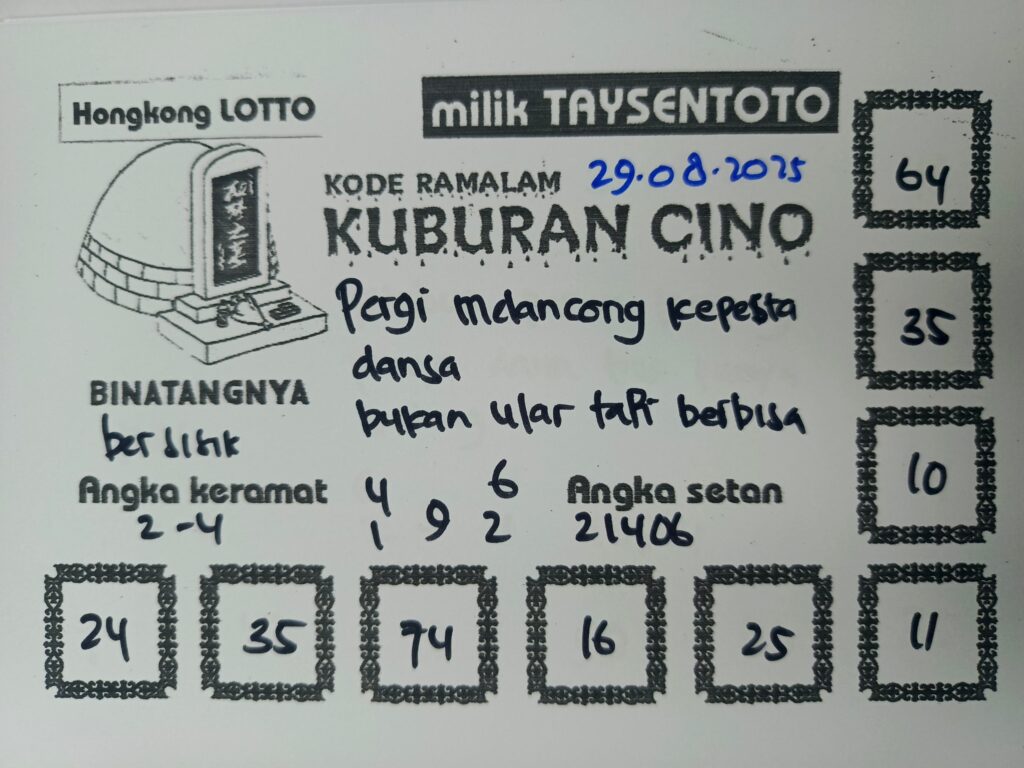 Hongkong LOTTO
milik TAYSENTOTO
KODE RAMALAM 29.08.2025
KUBURAN CINO
Pergi melancong kepesta
dansa
bukan ular tapi berbisa
BINATANGNYA
bersisik
Angka keramat
2-4
4 6
1 9 2
Angka setan
21406
64
35
10
24 35 74 16 25 11